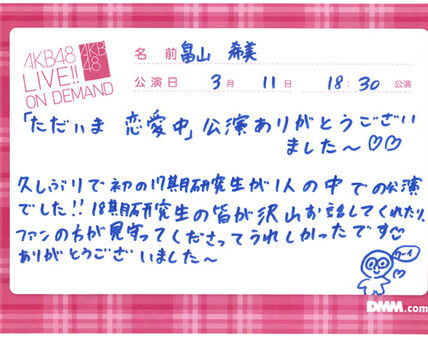 AKB48
LIVE!!
ON DEMAND
AKB
48
名 前 畠山 希美
公演日 3月 11日 18:30 公演
「ただいま 恋愛中」公演ありがとうござい
ました〜♡♡
久しぶりで初の17期研究生が1人の中での公演
でした!! 18期研究生の皆が沢山お話してくれたり、
ファンの方が見守ってくださってうれしかったです
ありがとうございました〜
DMM.com